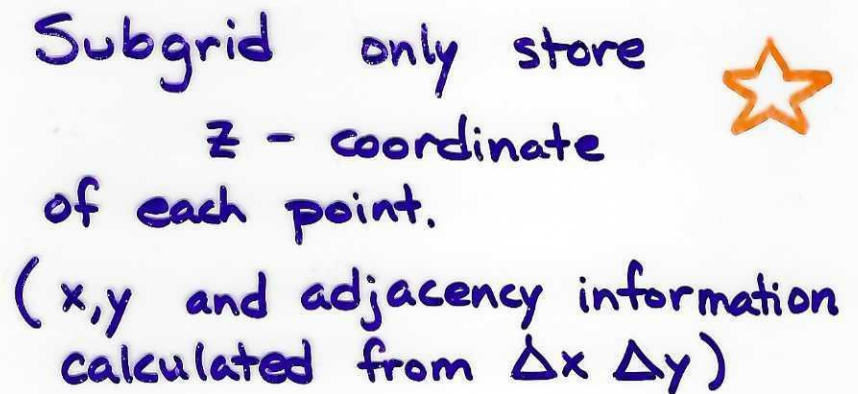 Subgrid only store
z - coordinate
of each point.
(x,y and adjacency information
calculated from Δx Δy)